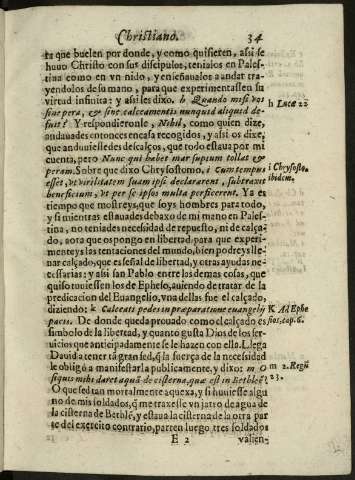 Christiano. 34
ra que buelen por donde, y como quisieren, assi se
huuo Christo con sus discipulos, tenialos en Pales-
tina como en vn nido, y enseñaualos a andar tra-
yendolos de su mano, para que experimentassen su
virtud infinita: y assi les dixo. h Quando misi vos
sine pera, & sine calceamentis nunquid aliquid de-
h Lucæ 22
fuit? Y respondieronle, Nihil, como quien dize,
andauades entonces en casa recogidos, y assi os dixe,
que anduuiessedes descalços, que todo estaua por mi
cuenta, pero Nunc qui habet marsupium tollat &
peram. Sobre que dixo Chrysostomo, i Cum tempus
i Chrysosto.
ibidem.
esset, vt virilitatem suam ipsi declararent, subtraxit
beneficium, vt per se ipsos multa perficerent. Ya es
tiempo que mostreys, que soys hombres para todo,
y si mientras estauades debaxo de mi mano en Pales-
tina, no teniades necessidad de repuesto, ni de calça-
do, aora que os pongo en libertad para que experi-
menteys las tentaciones del mundo, bien podreys lle-
nar calçado, que es señal de libertad, y otras ayudas ne-
cessarias: y assi san Pablo entre las demas cosas, que
quiso tuuiessen los de Epheso, auiendo de tratar de la
predicacion del Euangelio, vna dellas fue el calçado,
diziendo: k Calceati pedes in præparatione euangelij
K Ad Ephe
sios, cap. 6.
pacis. De donde queda prouado como el calçado es
simbolo de la libertad, y quanto gusta Dios de los ser-
uicios que anticipadamente se le hazen con ella. Llega
Dauid a tener tã gran sed, q̃ la fuerça de la necessidad
le obligó a manifestarla publicamente, y dixo: m O
m 2. Regũ
23.
siquis mihi daret aquã de cisterna, quæ est in Bethleẽ!
O que sed tan mortalmente aquexa, y si huuiesse algu
no de mis soldados, q̃ me traxesse vn jarro de agua de
la cisterna de Bethlẽ, y estaua la cisterna de la otra par
te del exercito contrario, parten luego tres soldados
E 2 valien-